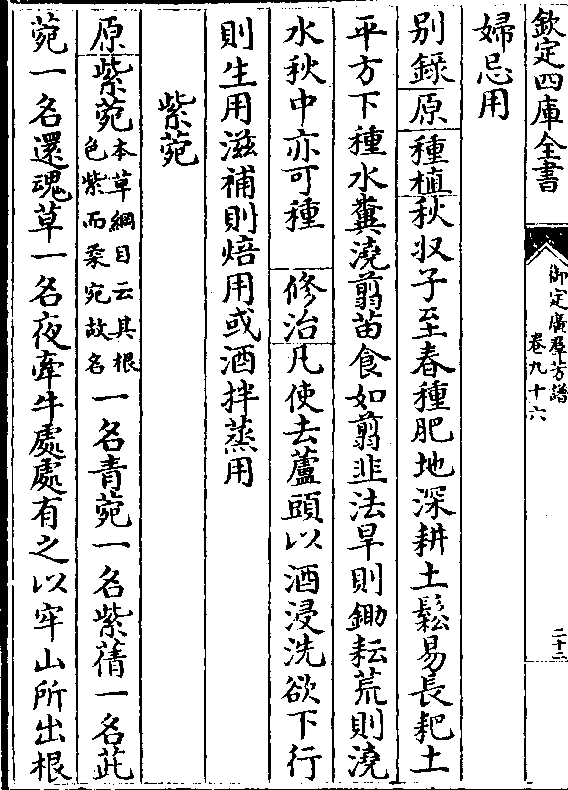 欽定四庫全書
御定廣羣芳譜
卷九十六
二十二
婦忌用
别錄原種植秋收子至春種肥地深耕土鬆易長耙土
平方下種水糞澆翦苗食如翦韭法旱則鋤耘荒則澆
水秋中亦可種　修治凡使去蘆頭以酒浸洗欲下行
則生用滋補則焙用或酒拌蒸用
紫菀
原紫菀本草綱目云其根色紫而柔宛故名一名青菀一名紫蒨一名茈
菀一名還魂草一名夜牽牛處處有之以牢山所出根